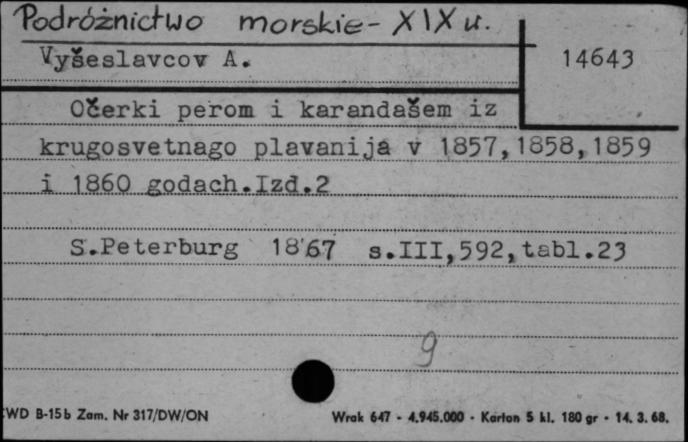 Podróżnictwo morskie - XIX w.
Vyšeslavcov A.
14643
Očerki perom i karandašem iz
krugosvetnago plavanija v 1857,1858,1859
i 1860 godach.Izd.2
S.Peterburg 1867 s.III,592,tabl.23
9
CWD B-15b Zam. Nr 317/DW/ON
Wrak 647 - 4.945.000 - Karton 5 kl. 180 gr - 14. 3. 68.